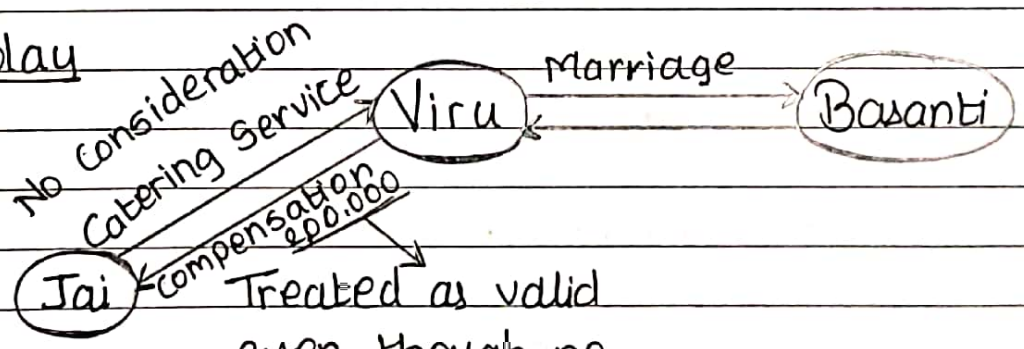 lay
No consideration
Catering Service
Viru
Marriage
Basanti
compensation
200.000
Jai
Treated as valid
even though no